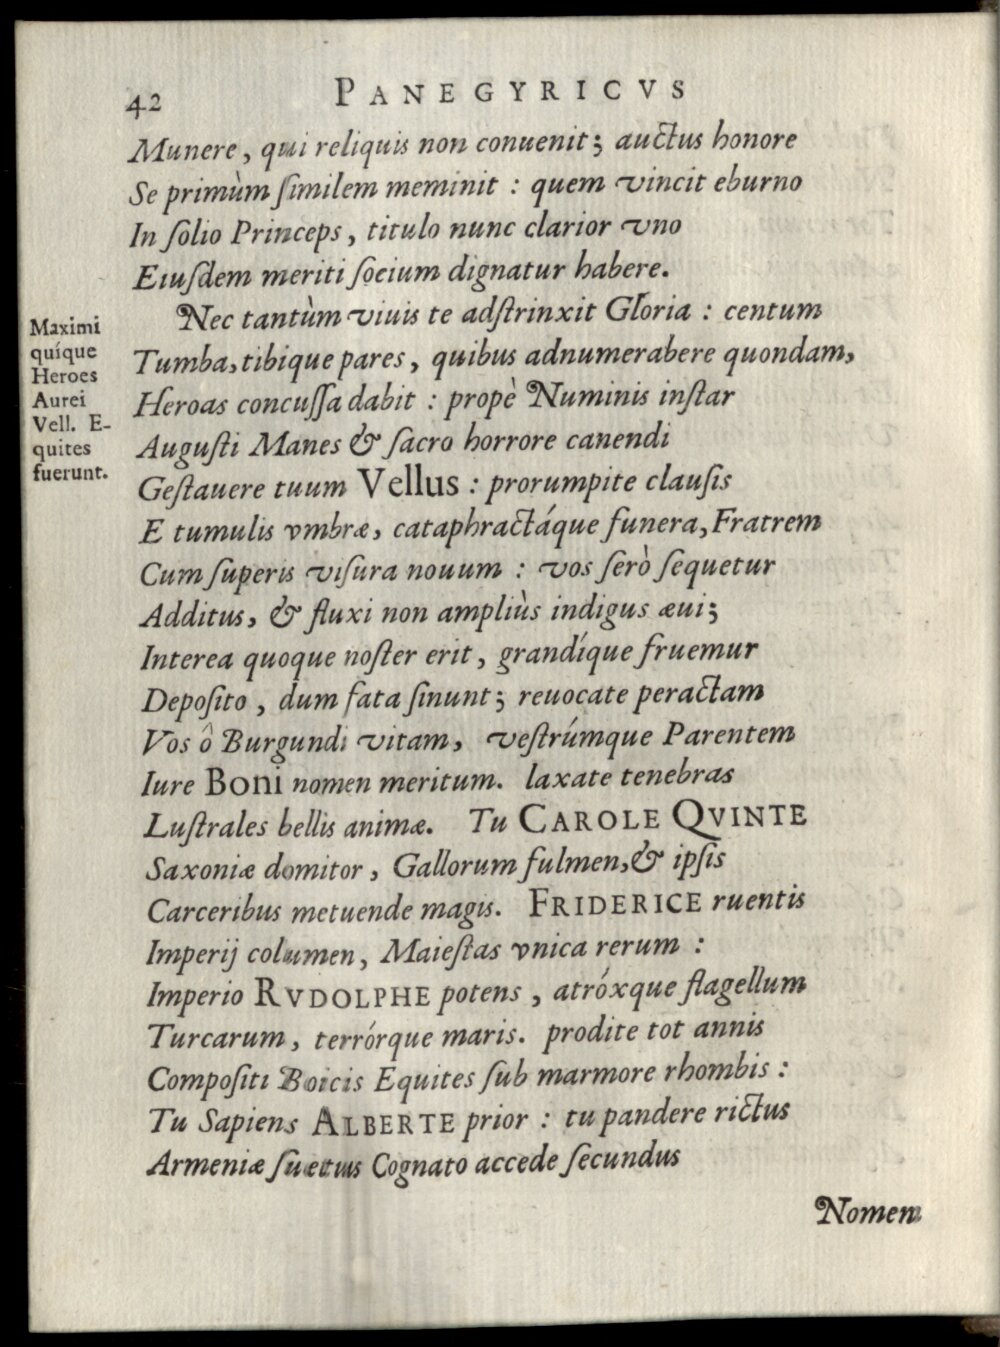 42 PANEGYRICVS
Munere, qui reliquis non conuenit; auctus honore
Se primùm ſimilem meminit : quem vincit eburno
In ſolio Princeps, titulo nunc clarior vno
Eiuſdem meriti ſocium dignatur habere.
Nec tantùm viuis te adſtrinxit Gloria : centum
Tumba, tibique pares, quibus adnumerabere quondam,
Heroas concuſſa dabit : propè Numinis inſtar
Auguſti Manes & ſacro horrore canendi
Geſtauere tuum Vellus : prorumpite clauſis
E tumulis vmbræ, cataphractáque funera, Fratrem
Cum ſuperis viſura nouum : vos ſerò ſequetur
Additus, & fluxi non ampliùs indigus æui;
Interea quoque noſter erit, grandíque fruemur
Depoſito, dum fata ſinunt; reuocate peractam
Vos ô Burgundi vitam, veſtrúmque Parentem
Iure Boni nomen meritum. laxate tenebras
Luſtrales bellis animæ. Tu CAROLE QVINTE
Saxoniæ domitor, Gallorum fulmen, & ipſis
Carceribus metuende magis. FRIDERICE ruentis
Imperij columen, Maieſtas vnica rerum :
Imperio RVDOLPHE potens, atróxque flagellum
Turcarum, terrórque maris. prodite tot annis
Compoſiti Boicis Equites ſub marmore rhombis :
Tu Sapiens ALBERTE prior : tu pandere rictus
Armeniæ ſuetus Cognato accede ſecundus
Nomen
Maximi
quíque
Heroes
Aurei
Vell. E-
quites
fuerunt.